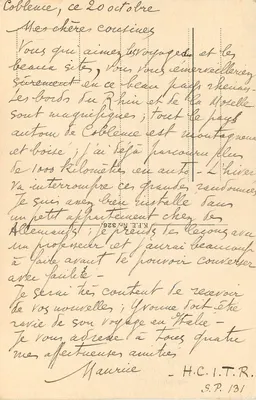 Coblence, ce 20 octobre
Mes chères cousines
Vous qui aimez les voyages et les
beaux sites, vous vous émerveilleriez
sûrement en ce beau pays rhénan.
Les bords du Rhin et de la Moselle
sont magnifiques ; tout le pays
autour de Coblence est montagneux
et boisé ; j'ai déjà parcouru plus
de 1000 kilomètres en auto. L'hiver
va interrompre ces grandes randonnées
Je suis assez bien installé dans
un petit appartement chez des
Allemands ; je prends des leçons avec
un professeur et j'aurai beaucoup
à faire avant de pouvoir converser
avec facilité -
Je serai très content de recevoir
de vos nouvelles ; Yvonne doit être
ravie de son voyage en Italie -
Je vous adresse à toutes quatre
mes affectueuses amitiés
Maurice - H.C.I.T.R.
S.P. 131